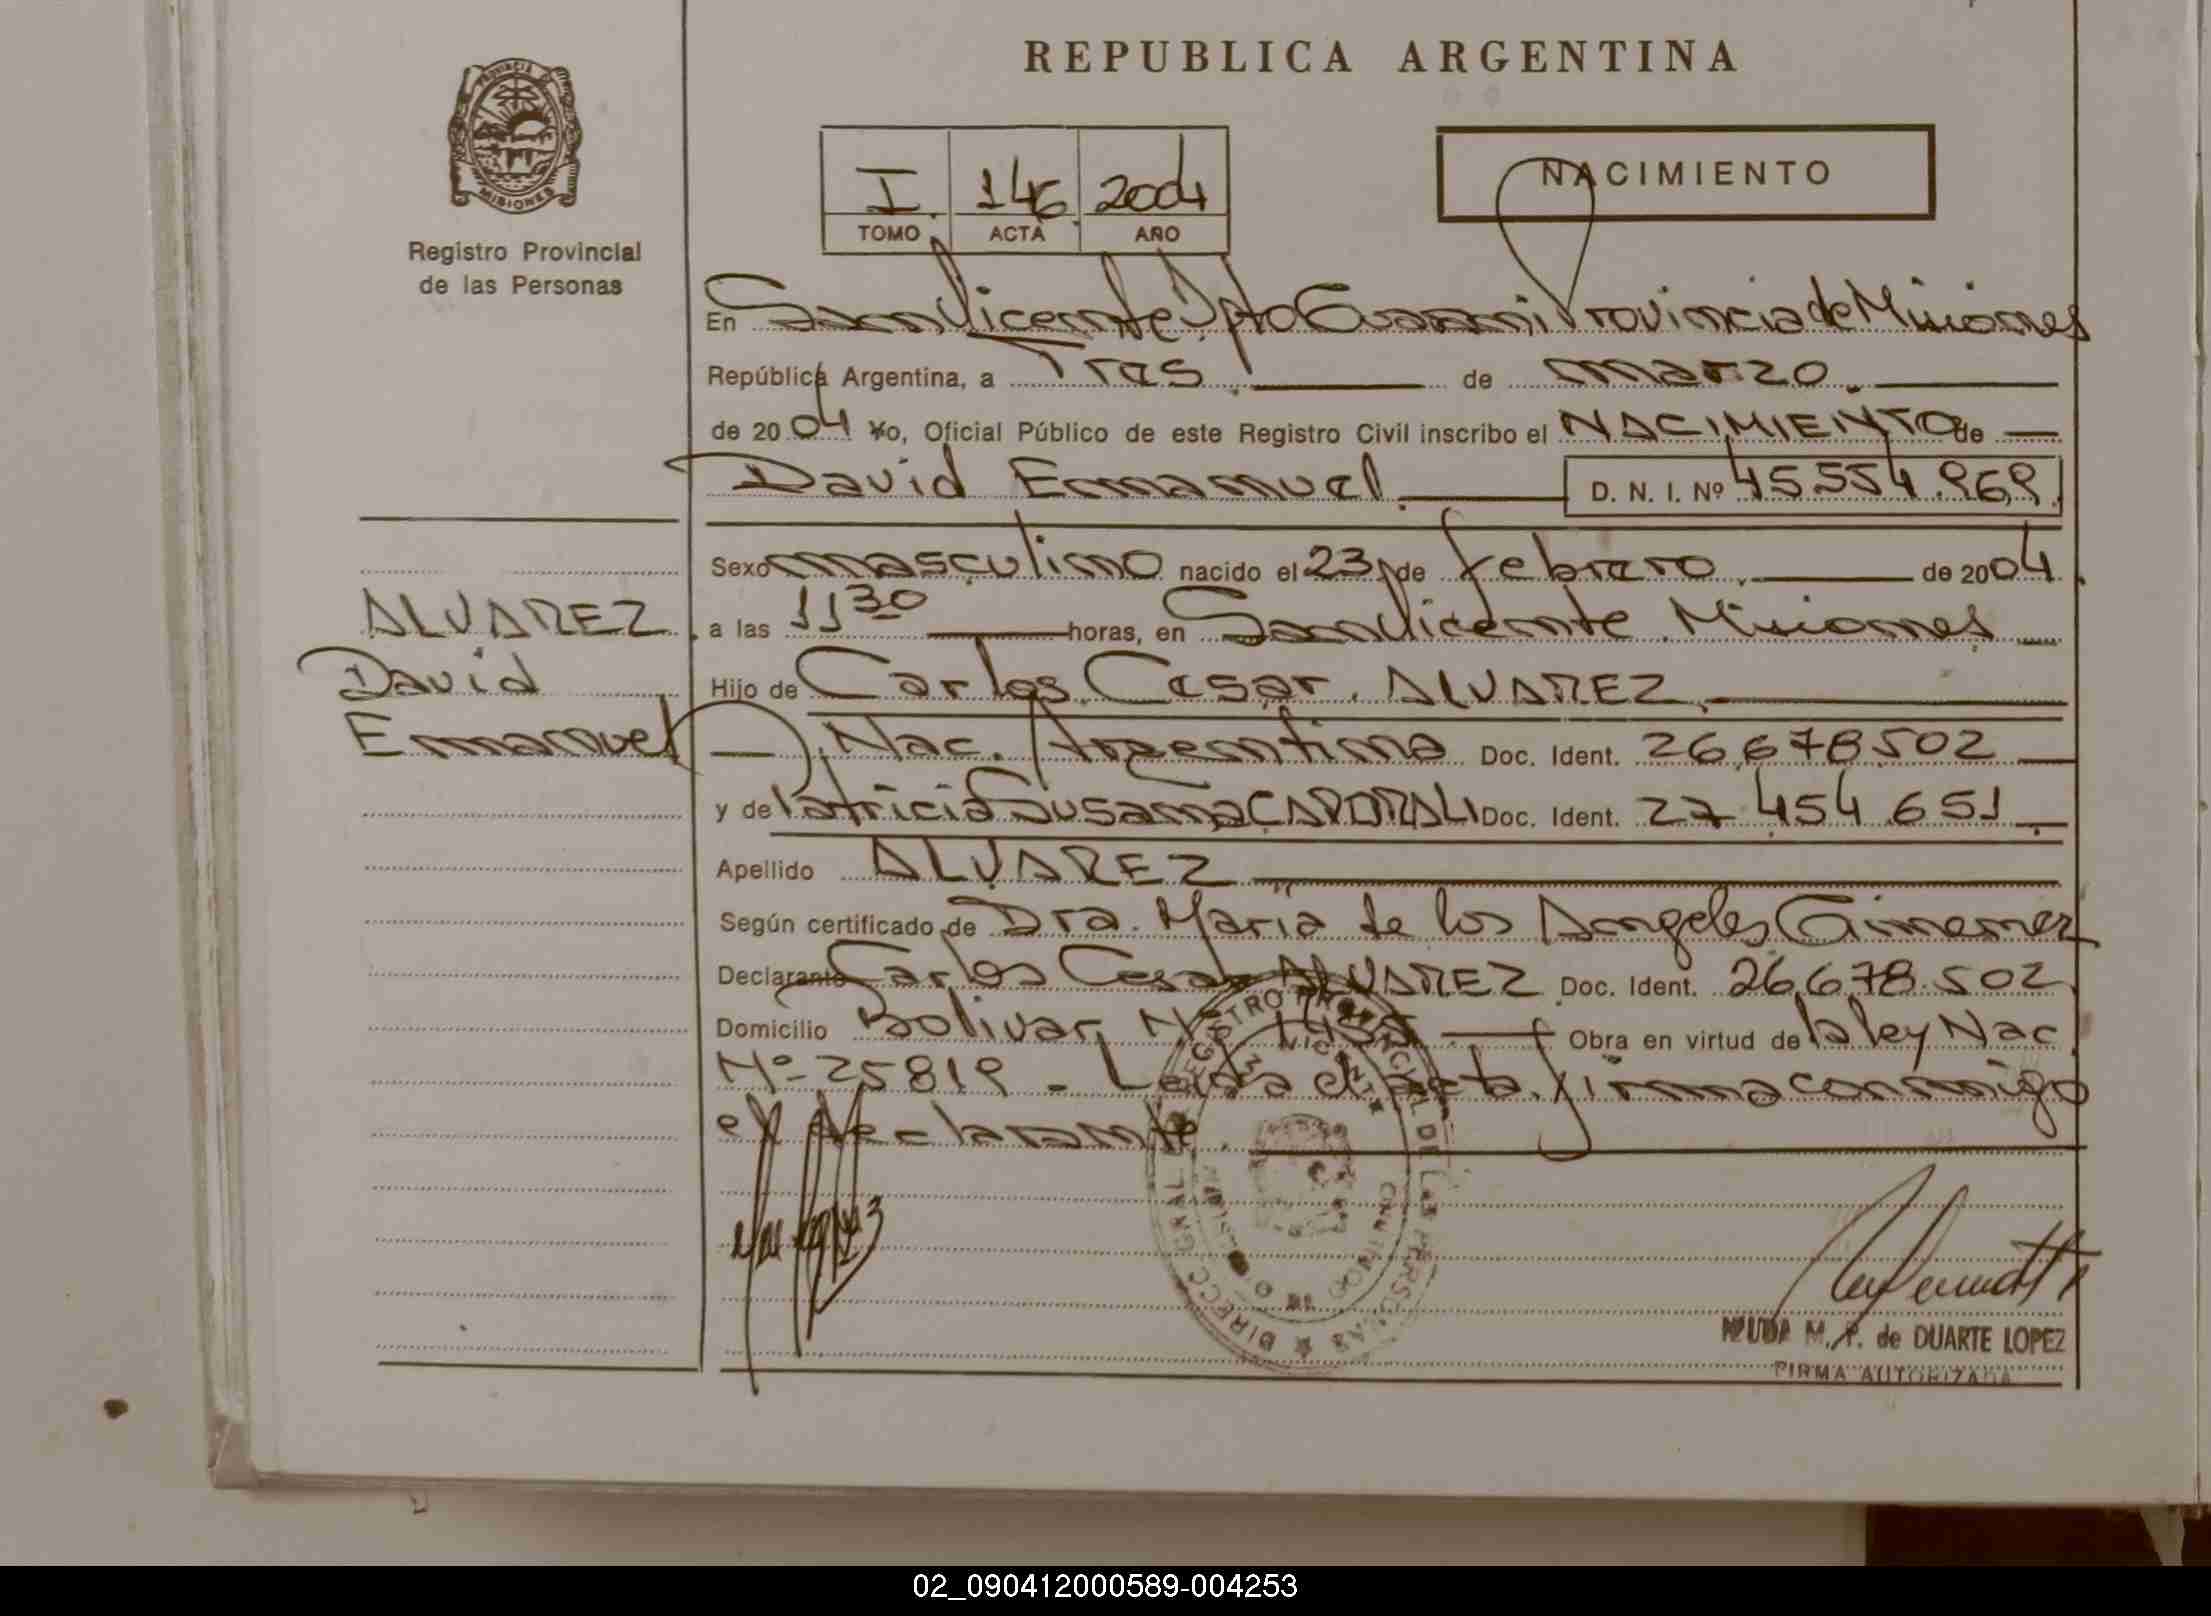 REPUBLICA ARGENTINA
PROVINCIA DE
MISIONES
Registro Provincial
de las Personas
NACIMIENTO
I. 146 2004
TOMO ACTA AÑO
En San Vicente Dpto Guarani Provincia de Misiones
República Argentina, a Tres de marzo.
de 2004 Yo, Oficial Público de este Registro Civil inscribo el NACIMIENTO de
David Emmanuel D. N. I. Nº 45.554.969.
Sexo masculino nacido el 23 de febrero. de 2004.
ALVAREZ
David
Emmanuel
a las 11 30 horas, en San Vicente Misiones
Hijo de Carlos Cesar ALVAREZ
Nac. Argentina Doc. Ident. 26.678.502
y de Patricia Susana Doc. Ident. 27 454 651
Apellido ALVAREZ
Según certificado de Dra. Maria de los Angeles Gimenez
Declarante Carlos Cesar ALVAREZ Doc. Ident. 26.678.502
Domicilio Bolivar Nº Obra en virtud de la ley Nac.
Nº 25819 - Leida el acta firma conmigo
el declarante.
DIRECC GRAL REGISTRO PROVINCIAL DE LAS PERSONAS
M. P. de DUARTE LOPEZ
FIRMA AUTORIZADA
02_090412000589-004253